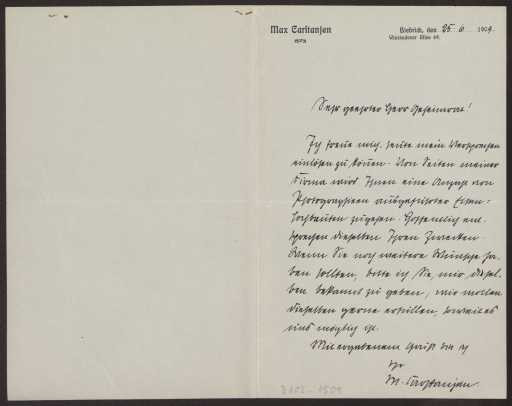 Max Carstanjen
Biebrich, den 25. 6. 1909.
Wiesbadener Allee 64.
Sehr geehrter Herr Geheimrat!
Ich freue mich, heute mein Versprechen
einlösen zu können. Von Seiten meiner
Firma wird Ihnen eine Anzahl von
Photographieen ausgeführter Eisen-
hochbauten zugehen. Hoffentlich ent-
sprechen dieselben Ihren Zwecken.
Wenn Sie noch weitere Wünsche ha-
ben sollten, bitte ich Sie, mir diesel-
ben bekannt zu geben, wir wollen
dieselben gerne erfüllen, soweit es
uns möglich ist.
Mit ergebenem Gruß bin ich
Ihr
M. Carstanjen.